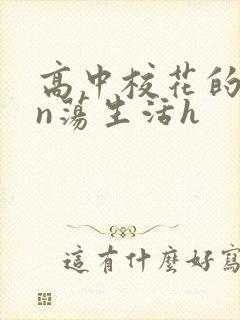 高中校花的
n蕩生活h
這有什麼好寫